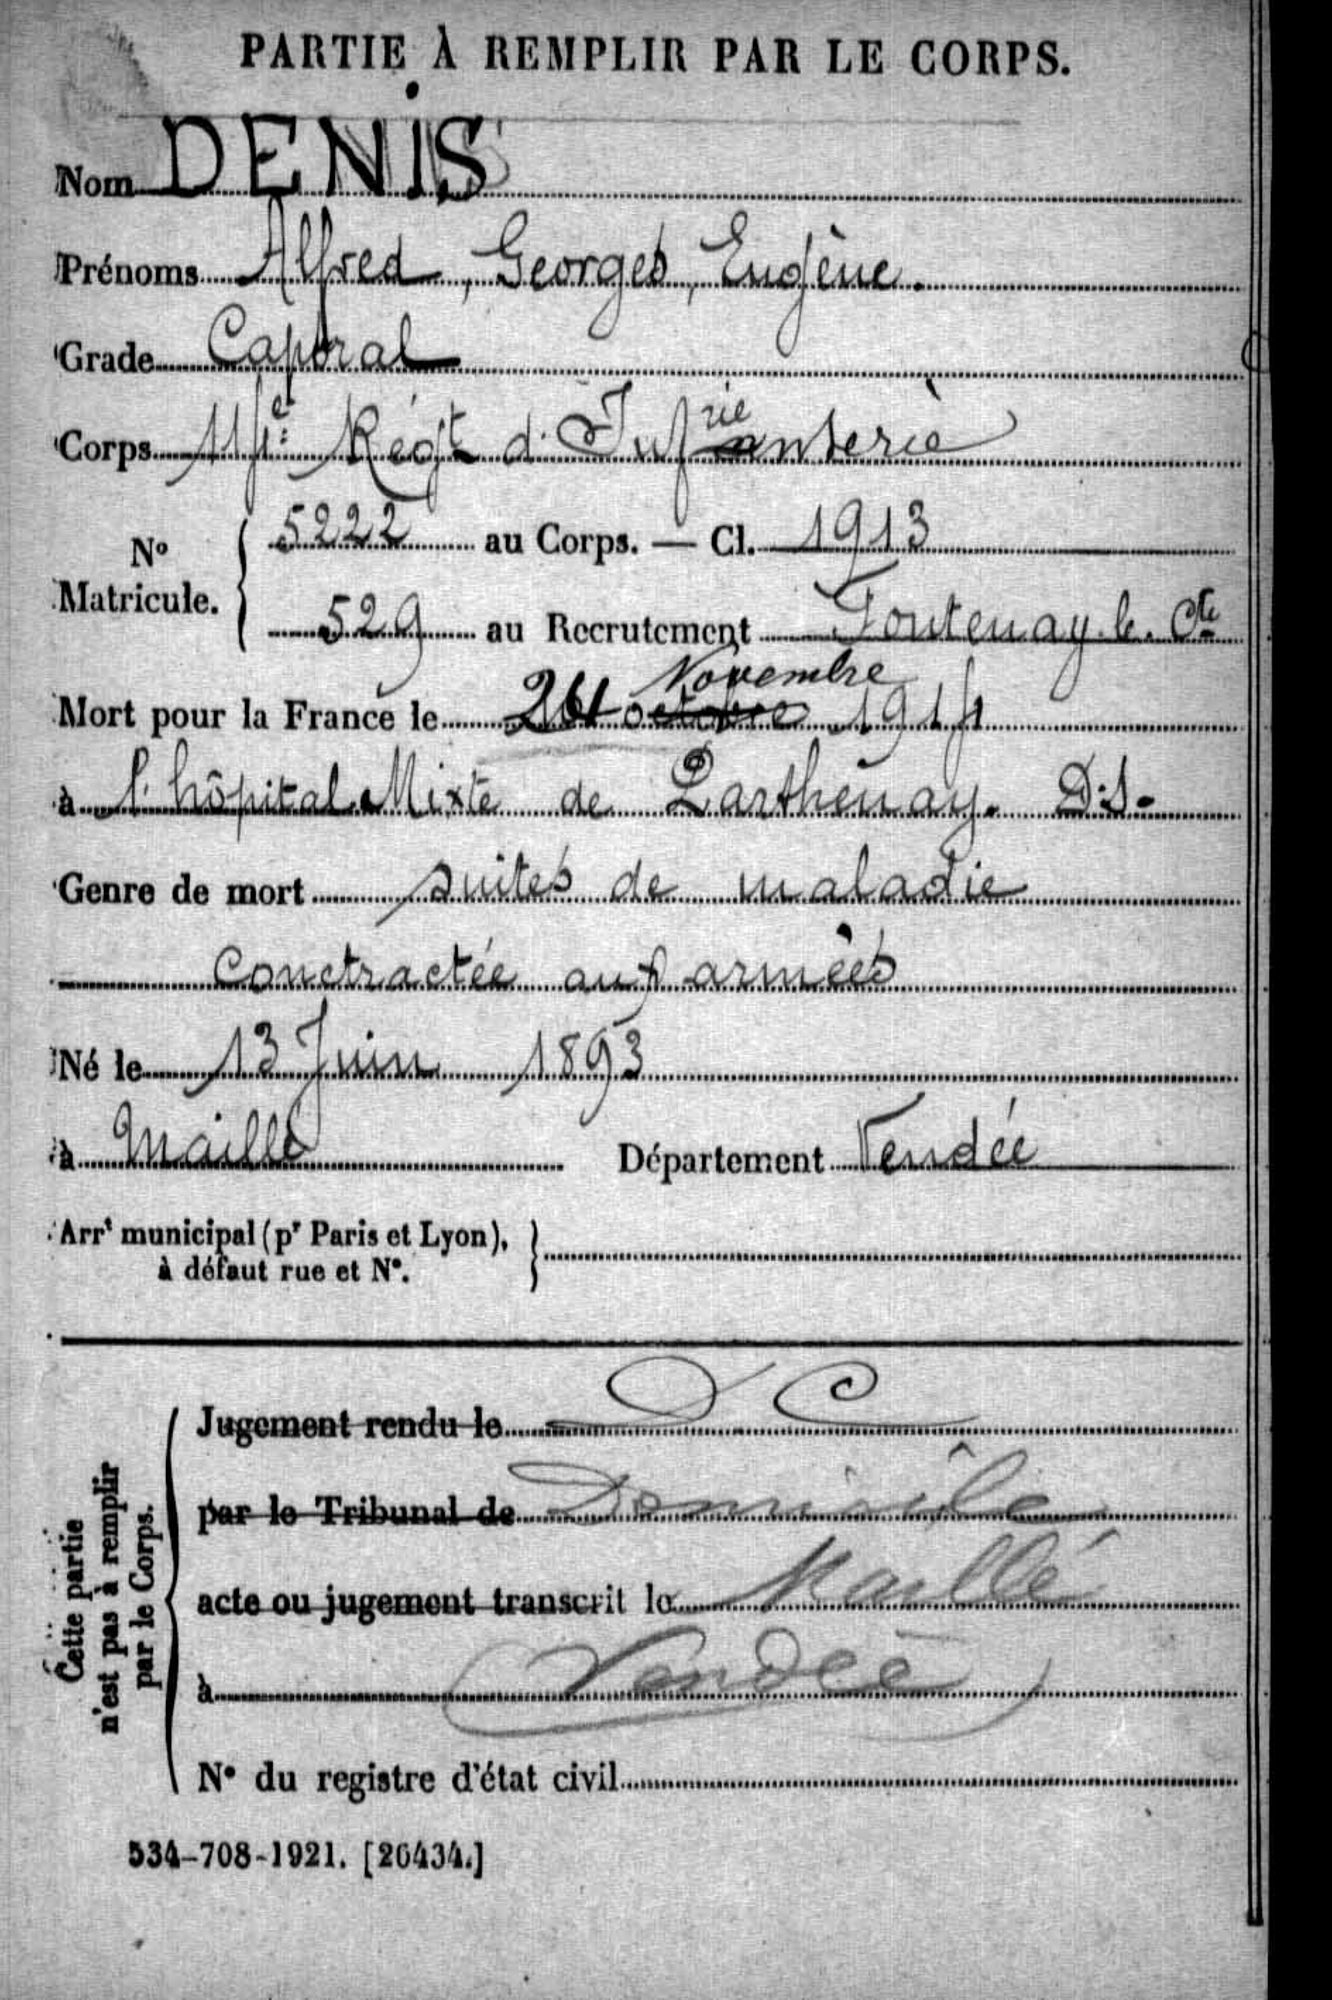 PARTIE À REMPLIR PAR LE CORPS.
Nom DENIS
Prénoms Alfred, Georges, Eugène.
Grade Caporal
Corps 114e Régt d'Infanterie rie
No Matricule. 5222 au Corps. — Cl. 1913
529 au Recrutement Fontenay le Cte
Novembre
Mort pour la France le octobre 1914
à l'hôpital Mixte de Parthenay. D.S.
Genre de mort suites de maladie
conctractée aux armées
Né le 13 Juin 1893
à Maillé Département Vendée
Arrt municipal (pr Paris et Lyon),
à défaut rue et No.
Cette partie
n'est pas à remplir
par le Corps.
Jugement rendu le D C
par le Tribunal de Domicile
acte ou jugement transcrit le Maillé
à (Vendée)
No du registre d'état civil
534-708-1921. [26434.]